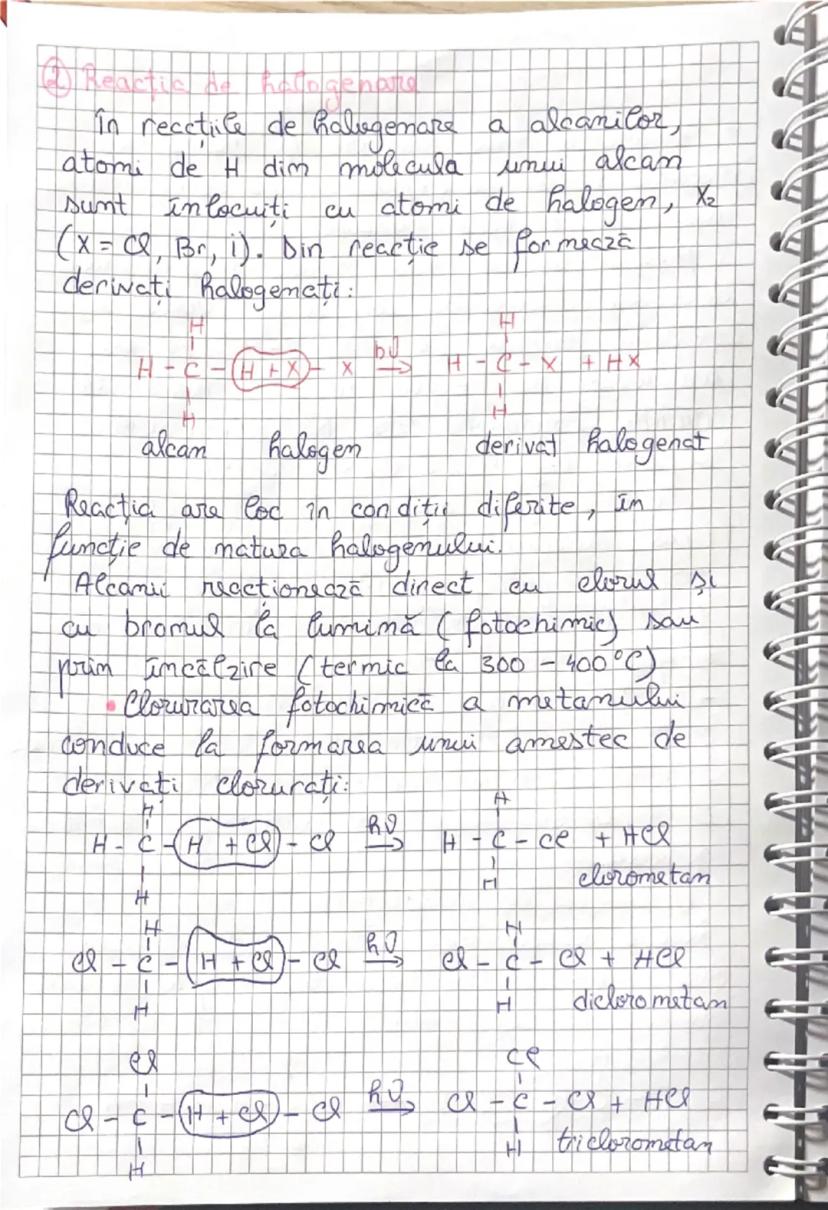 ② Reacția de halogenare
În reacțiile de halogenare a alcanilor,
atomi de H din molecula unui alcan
sunt înlocuiți cu atomi de halogen, X₂
(X = Cl, Br, i). Din reacție se formează
derivați halogenați:
H H
H - C - H + X - X hν→ H - C - X + HX
H H
alcan halogen derivat halogenat
Reacția are loc în condiții diferite, în
funcție de natura halogenului.
Alcanii reacționează direct cu clorul și
cu bromul la lumină (fotochimic) sau
prin încălzire (termic la 300 - 400°C)
• Clorurarea fotochimică a metanului
conduce la formarea unui amestec de
derivați clorurați:
H H
H - C - H + Cl - Cl hν→ H - C - Cl + HCl
H H clorometan
H H
Cl - C - H + Cl - Cl hν→ Cl - C - Cl + HCl
H H diclorometan
Cl Cl
Cl - C - H + Cl - Cl hν→ Cl - C - Cl + HCl
H H triclorometan